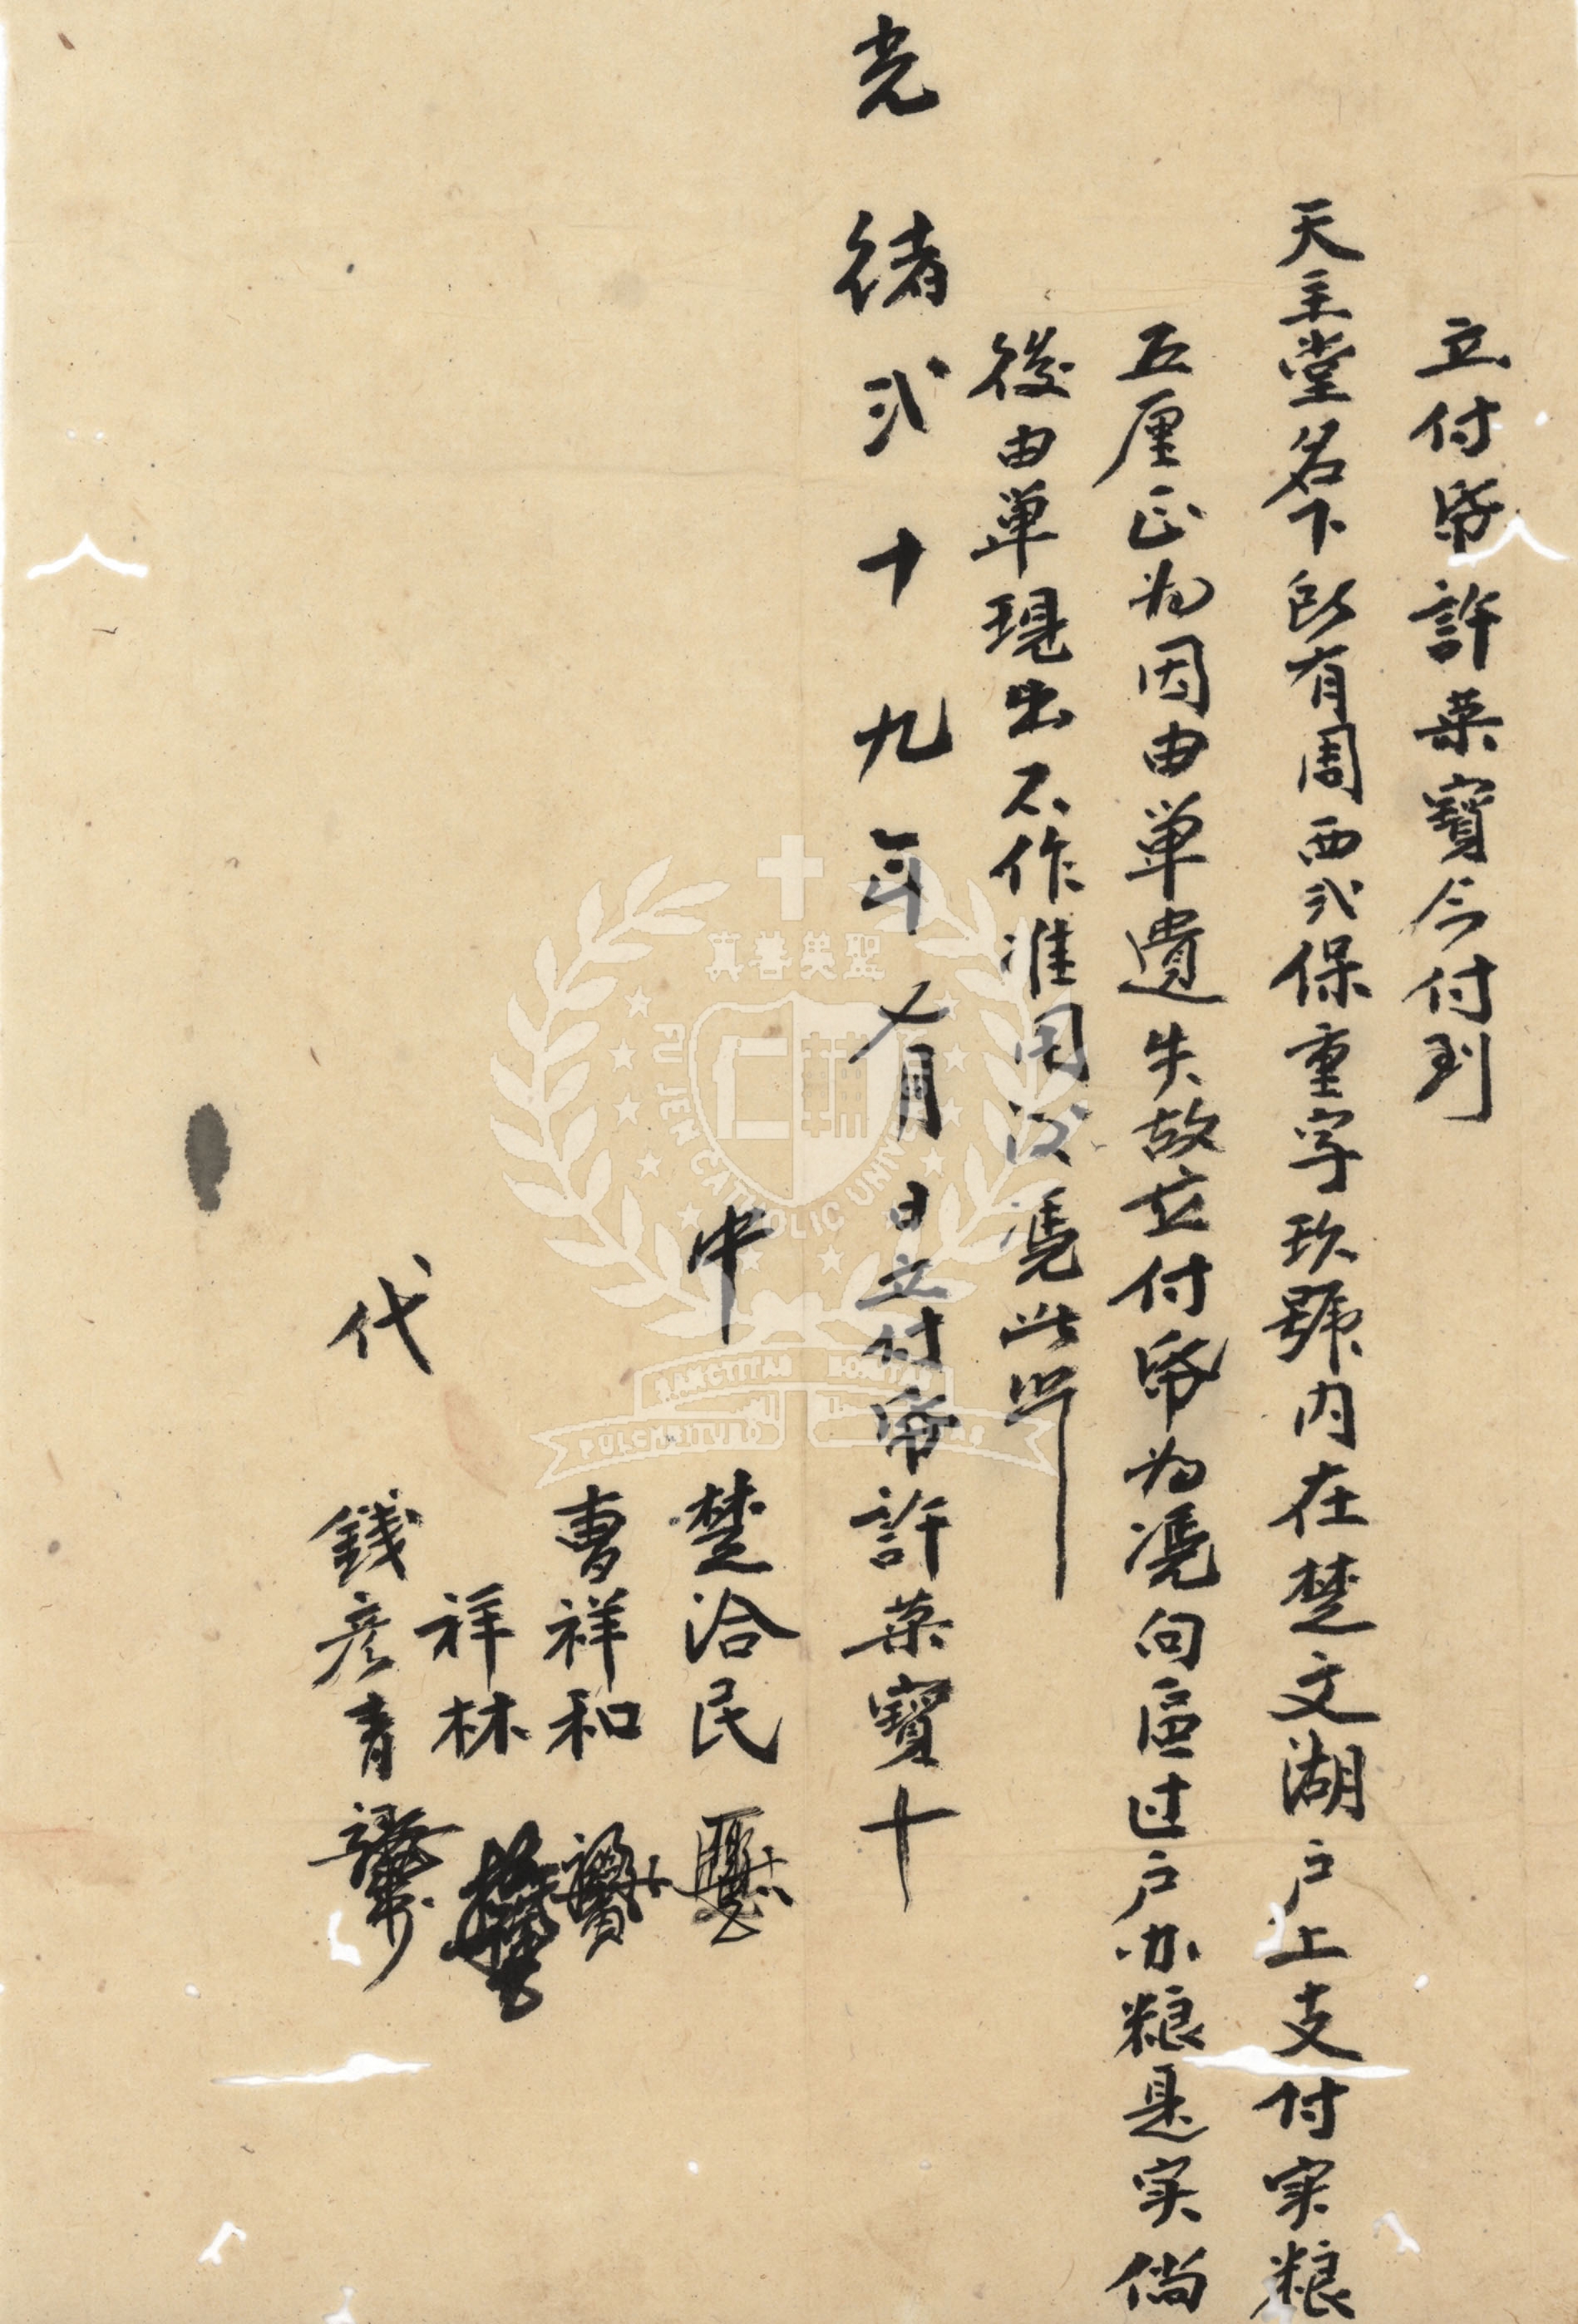 立付帋許菜寶今付到
天主堂名下所有周西弍保重字玖號内在楚文湖户上支付実粮
五厘正为因由单遺失故立付帋为憑向區过户办粮是实倘
後由单現出不作准用後憑此照
光緒弍十九年 月 日立付帋許菜寶十
中 楚洽民
曹祥和
祥林
代 錢彦青
真善美聖
FU JEN CATHOLIC UNIVERSITY
SANCTITAS BONITAS
PULCHRITUDO VERITAS